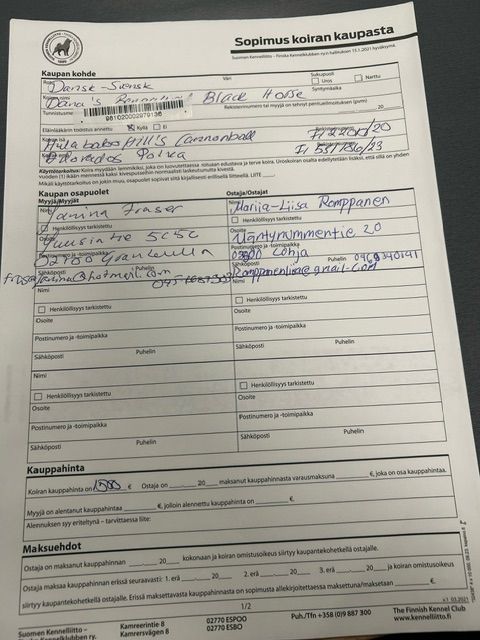 Sopimus koiran kaupasta
Suomen Kennelliitto – Finska Kennelklubben ry:n hallituksen 15.1.2021 hyväksymä
Kaupan kohde
Rotu Dansk-Svensk Väri Sukupuoli Uros Narttu
Koiran nimi Dana's Black Horse Syntymäaika
Tunnistusnro 981020002979136 Rekisterinumero tai myyjä on tehnyt pentueilmoituksen (pvm) 20
Eläinlääkärin todistus annettu Kyllä Ei
Koiran isä Hulabaloo Hill's Cannonball
Polka FI 551736/23
Käyttötarkoitus: Koira myydään lemmikiksi, joka on luovutettaessa rotunsa edustava ja terve koira. Uroskoiran osalta edellytetään lisäksi, että sillä on yhden
vuoden (1) ikään mennessä kaksi kivespussiin normaalisti laskeutunutta kivestä.
Mikäli käyttötarkoitus on jokin muu, osapuolet sopivat siitä kirjallisesti erillisellä liitteellä. LIITE
Kaupan osapuolet
Myyjä/Myyjät Ostaja/Ostajat
Nimi Janina Fraser Nimi Marija-Liisa Romppanen
Henkilöllisyys tarkistettu Henkilöllisyys tarkistettu
Osoite Kuusitie 5C52 Osoite Mäntynummentie 20
Postinumero ja -toimipaikka 02700 Grankulla Postinumero ja -toimipaikka Lohja
Sähköposti Puhelin Sähköposti Puhelin
Romppanenliisa@gmail.com
Nimi Nimi
Henkilöllisyys tarkistettu Henkilöllisyys tarkistettu
Osoite Osoite
Postinumero ja -toimipaikka Postinumero ja -toimipaikka
Sähköposti Puhelin Sähköposti Puhelin
Nimi Nimi
Henkilöllisyys tarkistettu Henkilöllisyys tarkistettu
Osoite Osoite
Postinumero ja -toimipaikka Postinumero ja -toimipaikka
Sähköposti Puhelin Sähköposti Puhelin
Kauppahinta
Koiran kauppahinta on 1500 € Ostaja on ____.____.20____ maksanut kauppahinnasta varausmaksuna ____ €, joka on osa kauppahintaa.
Myyjä on alentanut kauppahintaa ____ €, jolloin alennettu kauppahinta on ____ €.
Alennuksen syy eriteltynä – tarvittaessa liite:
Maksuehdot
Ostaja on maksanut kauppahinnan ____.____.20____ kokonaan ja koiran omistusoikeus siirtyy kaupantekohetkellä ostajalle.
Ostaja maksaa kauppahinnan erissä seuraavasti: 1. erä ____.____.20____ 2. erä ____.____.20____ 3. erä ____.____.20____ ja koiran omistusoikeus
siirtyy kaupantekohetkellä ostajalle. Erissä maksettavasta kauppahinnasta on sopimusta allekirjoitettaessa maksettuna/maksetaan ____ €.
1/2
v1 03.2021
Suomen Kennelliitto – Kamreerintie 8 02770 ESPOO Puh./Tfn +358 (0)9 887 300 The Finnish Kennel Club
Finska Kennelklubben ry. Kamrersvägen 8 02770 ESBO www.kennelliitto.fi